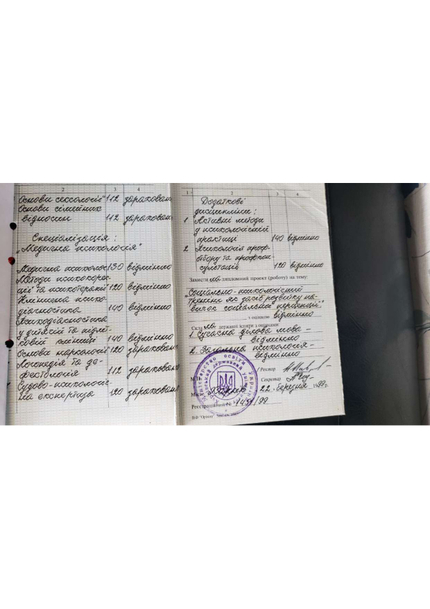 2 3 4
Основи сексології 112 зараховано
Основи сімейних
відносин 112 зараховано
Спеціалізація:
"Медична психологія"
Медична психологія 130 відмінно
Методи психокорек-
ції та психотерапії 120 відмінно
Клінічна психо-
діагностика 140 відмінно
Психодіагностика
140 відмінно
Основи наркології 120 зараховано
Логопедія та де-
фектологія 112 зараховано
Судово-психологіч-
на експертиза 120 зараховано
1 2 3 4
Додаткові
дисципліни:
1. Активні методи
у психологічній
практиці 140 відмінно
2. Психологія проф-
відбору та профкон-
сультація 120 відмінно
проект (роботу) на тему:
Соціально-психологічний
тренінг як засіб розвитку на-
з оцінкою
відмінно
державні іспити з оцінками
1. Сучасна ділова мова -
відмінно
2. Загальна психологія -
відмінно
Ректор
Секретар
22 березня 1999